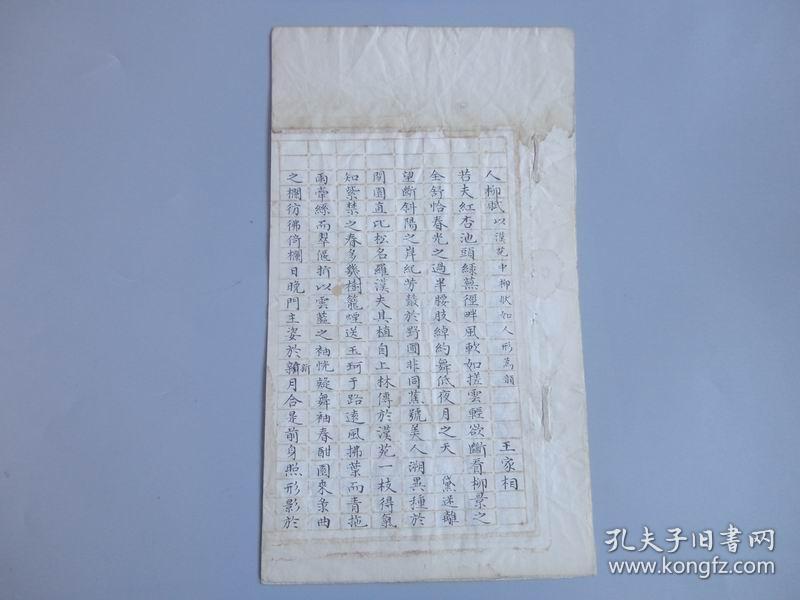 人柳賦 以漢苑中柳狀如人形為韻
王家相
若夫紅杏池頭綠蕪徑畔風軟如搓雲輕欲斷看柳景之
全舒恰春光之過半腰肢綽約舞低夜月之天 黛迷離
望斷斜陽之岸紀芳叢於野圃非同蕉號美人溯異種於
閬園直比松名羅漢夫其植自上林傳於漢苑一枝得氣
知紫禁之春多幾樹籠煙送玉珂于路遠風拂葉而青拖
雨牽絲而翠偃折以雲藍之袖恍疑舞袖春酣園來彔曲
之欄彷彿倚欄日晚門主姿於新月合是前身照形影於
孔夫子旧书网
www.kongfz.com